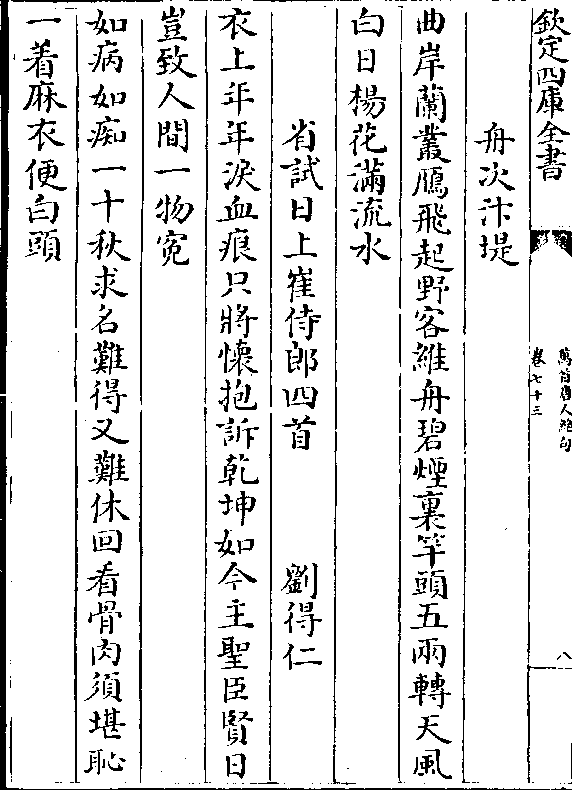 欽定四庫全書
萬首唐人絶句
卷七十三
八
舟次汴堤
曲岸蘭叢鴈飛起野客維舟碧煙裏竿頭五兩轉天風
白日楊花滿流水
省試日上崔侍郎四首 劉得仁
衣上年年淚血痕只將懷抱訴乾坤如今主聖臣賢日
豈致人間一物寃
如病如痴一十秋求名難得又難休回看骨肉須堪恥
一着麻衣便白頭